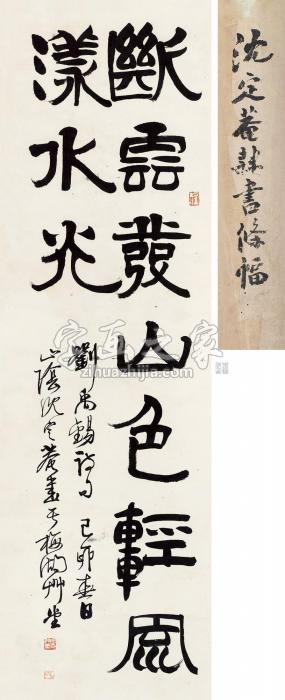 沈定菴隸書條幅
斷雲發山色輕風
漾水光
劉禹錫詩句 己卯春日
山陰沈定菴書于梅湖艸堂
字画之家
zihuazhijia.com